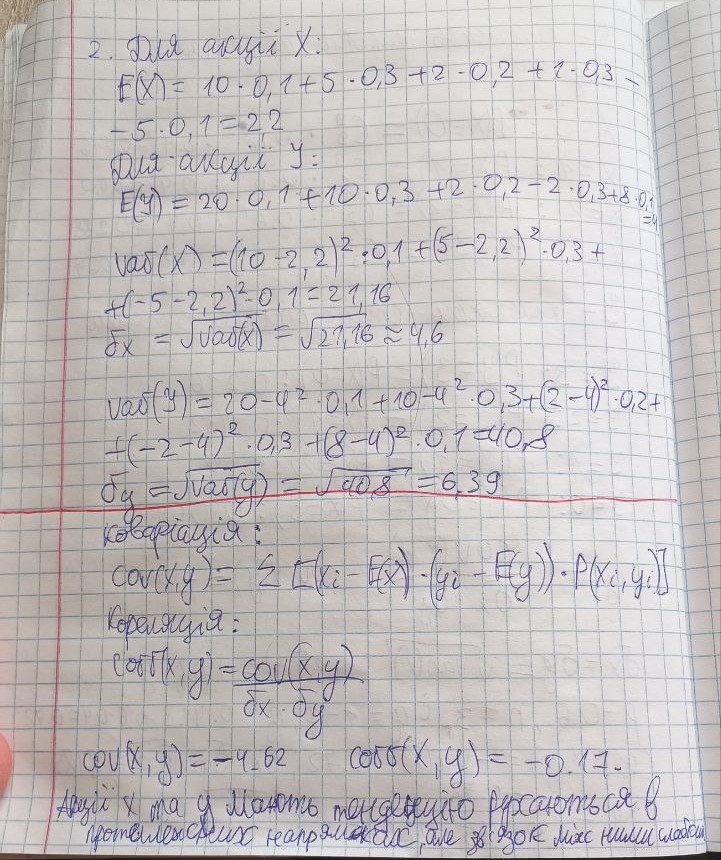 2. Для акції X:
E(X) = 10 · 0,1 + 5 · 0,3 + 2 · 0,2 + 1 · 0,3 -
- 5 · 0,1 = 22
Для акції У:
E(У) = 20 · 0,1 + 10 · 0,3 + 2 · 0,2 - 2 · 0,3 + 8 · 0,1
= 4
Var(X) = (10 - 2,2)² · 0,1 + (5 - 2,2)² · 0,3 +
+ (-5 - 2,2)² · 0,1 = 21,16
δx = √Var(X) = √21,16 ≈ 4,6
Var(У) = 20 - 4² · 0,1 + 10 - 4² · 0,3 + (2 - 4)² · 0,2 +
+ (-2 - 4)² · 0,3 + (8 - 4)² · 0,1 = 40,8
δy = √Var(y) = √40,8 = 6,39
коваріація:
Cov(x,y) = Σ [(xi - E(x)) · (yi - E(y)) · P(xi, yi)]
Кореляція:
Corr(x,y) = cov(x,y)
δx · δy
cov(x,y) = -4.62 corr(x,y) = -0.17.
Акції X та У мають тенденцію рухаються в
протилежних напрямках, але зв'язок між ними слабкий